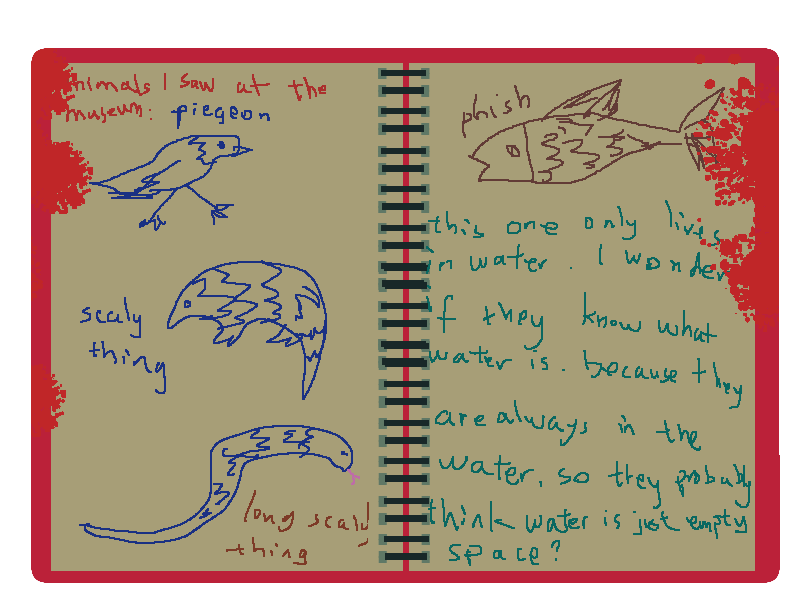 Animals I saw at the
museum: piegeon
scaly
thing
long scaly
thing
phish
this one only lives
in water. I wonder
if they know what
water is. because they
are always in the
water, so they probably
think water is just empty
space?